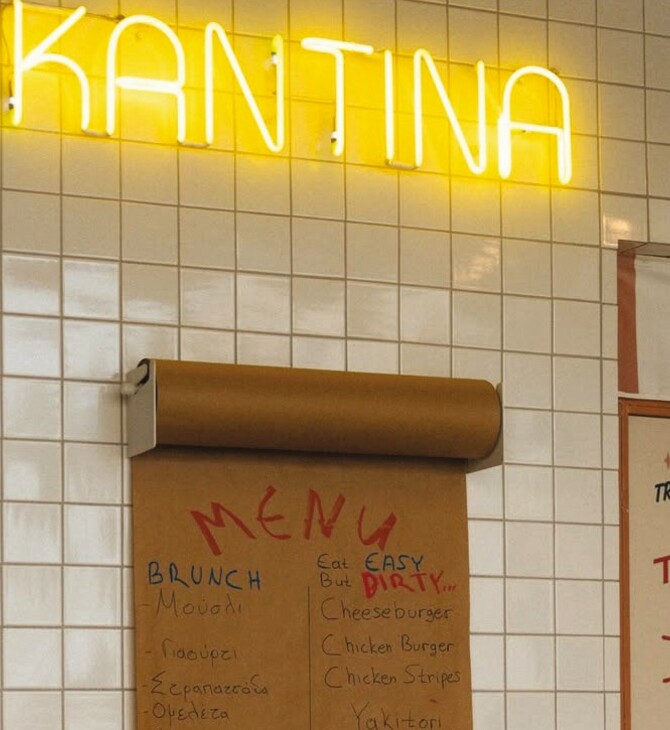 KANTINA
MENU
BRUNCH
- Μούσλι
- Γιαούρτι
- Στραπατσάδα
- Ομελέτα
Eat EASY
But DIRTY...
Cheeseburger
Chicken Burger
Chicken Stripes
Yakitori
TR
T